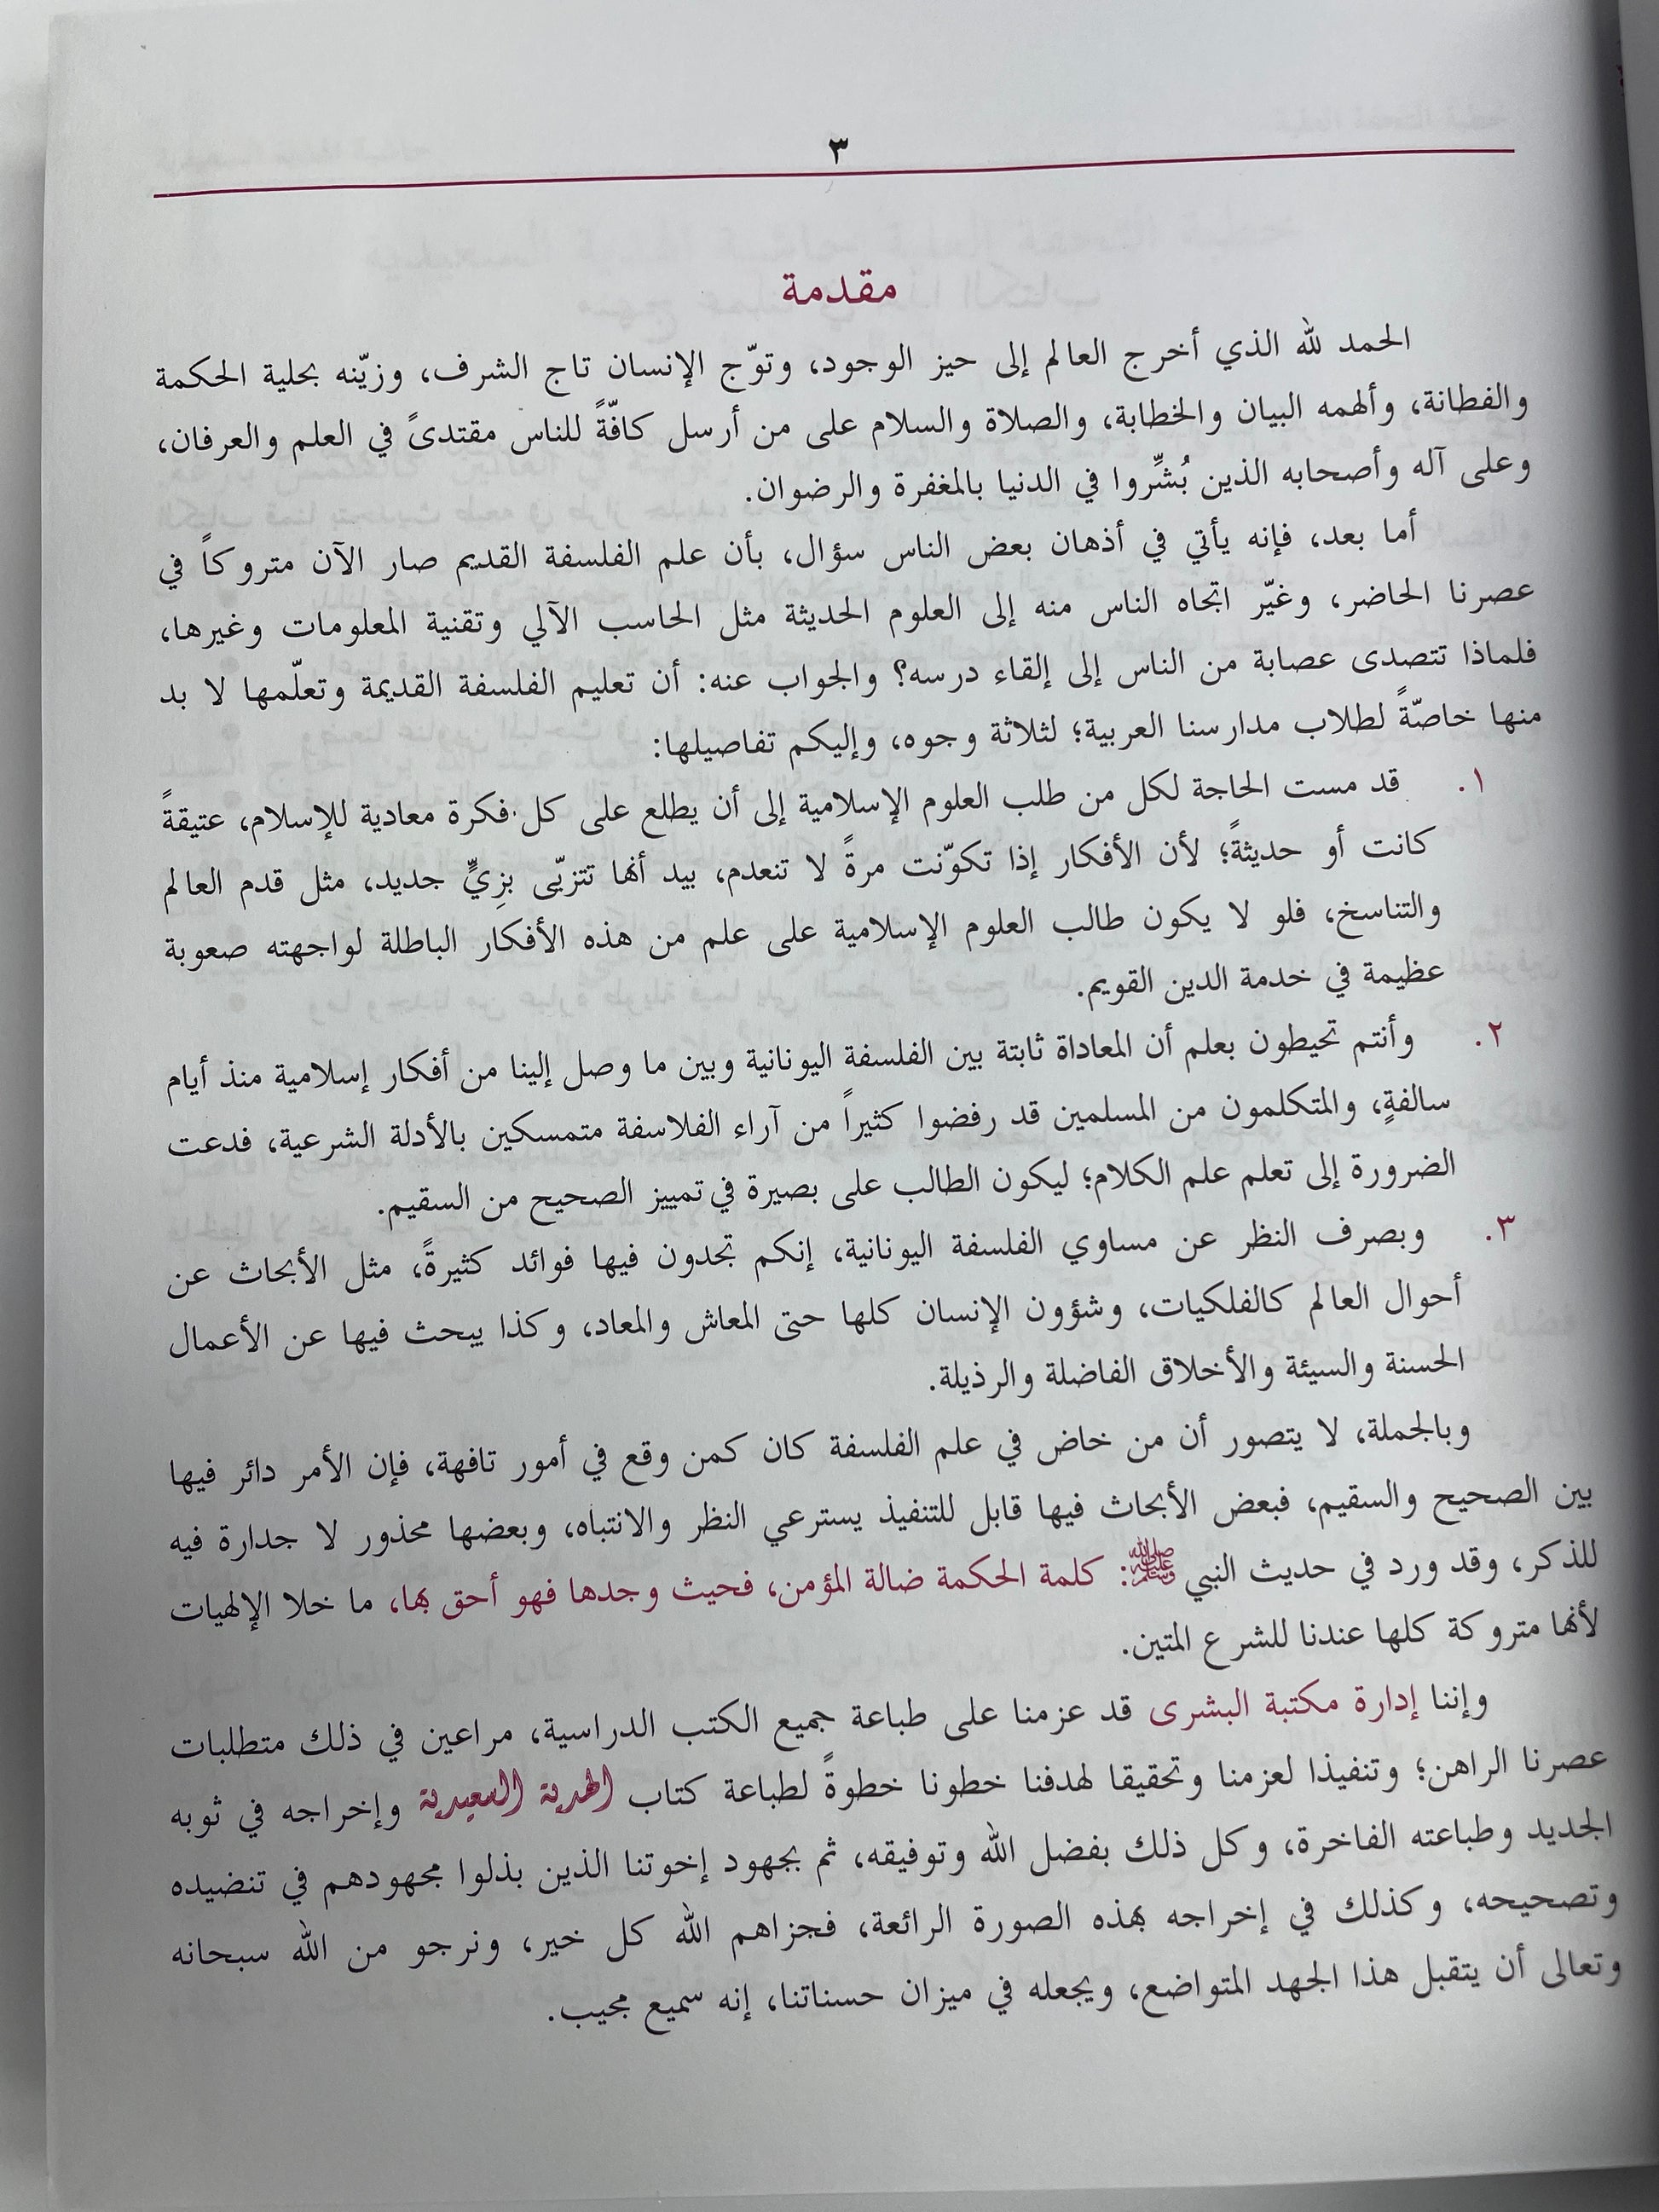 ٣
مقدمة
الحمد لله الذي أخرج العالم إلى حيز الوجود، وتوّج الإنسان تاج الشرف، وزيّنه بحلية الحكمة
والفطانة، وألهمه البيان والخطابة، والصلاة والسلام على من أرسل كافّةً للناس مقتدىً في العلم والعرفان،
وعلى آله وأصحابه الذين بُشِّروا في الدنيا بالمغفرة والرضوان.
أما بعد، فإنه يأتي في أذهان بعض الناس سؤال، بأن علم الفلسفة القديم صار الآن متروكاً في
عصرنا الحاضر، وغيّر اتجاه الناس منه إلى العلوم الحديثة مثل الحاسب الآلي وتقنية المعلومات وغيرها،
فلماذا تتصدى عصابة من الناس إلى إلقاء درسه؟ والجواب عنه: أن تعليم الفلسفة القديمة وتعلّمها لا بد
منها خاصّةً لطلاب مدارسنا العربية؛ لثلاثة وجوه، وإليكم تفاصيلها:
١. قد مست الحاجة لكل من طلب العلوم الإسلامية إلى أن يطلع على كل فكرة معادية للإسلام، عتيقةً
كانت أو حديثةً؛ لأن الأفكار إذا تكوّنت مرةً لا تنعدم، بيد أنها تتزيّى بزِيٍّ جديد، مثل قدم العالم
والتناسخ، فلو لا يكون طالب العلوم الإسلامية على علم من هذه الأفكار الباطلة لواجهته صعوبة
عظيمة في خدمة الدين القويم.
٢. وأنتم تحيطون بعلم أن المعاداة ثابتة بين الفلسفة اليونانية وبين ما وصل إلينا من أفكار إسلامية منذ أيام
سالفةٍ، والمتكلمون من المسلمين قد رفضوا كثيراً من آراء الفلاسفة متمسكين بالأدلة الشرعية، فدعت
الضرورة إلى تعلم علم الكلام؛ ليكون الطالب على بصيرة في تمييز الصحيح من السقيم.
٣. وبصرف النظر عن مساوي الفلسفة اليونانية، إنكم تجدون فيها فوائد كثيرةً، مثل الأبحاث عن
أحوال العالم كالفلكيات، وشؤون الإنسان كلها حتى المعاش والمعاد، وكذا يبحث فيها عن الأعمال
الحسنة والسيئة والأخلاق الفاضلة والرذيلة.
وبالجملة، لا يتصور أن من خاض في علم الفلسفة كان كمن وقع في أمور تافهة، فإن الأمر دائر فيها
بين الصحيح والسقيم، فبعض الأبحاث فيها قابل للتنفيذ يسترعي النظر والانتباه، وبعضها محذور لا جدارة فيه
للذكر، وقد ورد في حديث النبي ﷺ: كلمة الحكمة ضالة المؤمن، فحيث وجدها فهو أحق بها، ما خلا الإلهيات
لأنها متروكة كلها عندنا للشرع المتين.
وإننا إدارة مكتبة البشرى قد عزمنا على طباعة جميع الكتب الدراسية، مراعين في ذلك متطلبات
عصرنا الراهن؛ وتنفيذا لعزمنا وتحقيقا لهدفنا خطونا خطوةً لطباعة كتاب الهدية السعيدية وإخراجه في ثوبه
الجديد وطباعته الفاخرة، وكل ذلك بفضل الله وتوفيقه، ثم بجهود إخوتنا الذين بذلوا مجهودهم في تنضيده
وتصحيحه، وكذلك في إخراجه بهذه الصورة الرائعة، فجزاهم الله كل خير، ونرجو من الله سبحانه
وتعالى أن يتقبل هذا الجهد المتواضع، ويجعله في ميزان حسناتنا، إنه سميع مجيب.